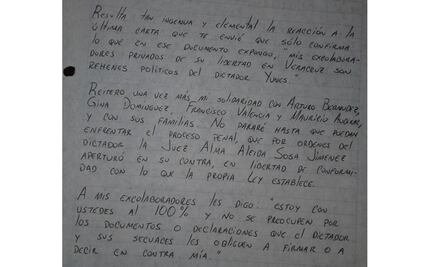 Resulta tan ingenua y elemental la reacción a la
última carta que te envié que sólo confirma
lo que en ese documento expongo, "mis excolabora-
dores privados de su libertad en Veracruz son
rehenes políticos del dictador Yunes."
Reitero una vez más mi solidaridad con Arturo Bermúdez,
Gina Domínguez, Francisco Valencia y Mauricio Audirac,
y con sus familias. No pararé hasta que puedan
enfrentar el proceso penal, que por ordenes del
dictador la Juez Alma Aleida Sosa Jiménez
aperturó en su contra, en libertad de conformi-
dad con lo que la propia ley establece.
A mis excolaboradores les digo: "estoy con
ustedes al 100% y no se preocupen por
los documentos o declaraciones que el dictador
y sus secuaces les obliguen a firmar o a
decir en contra mía."